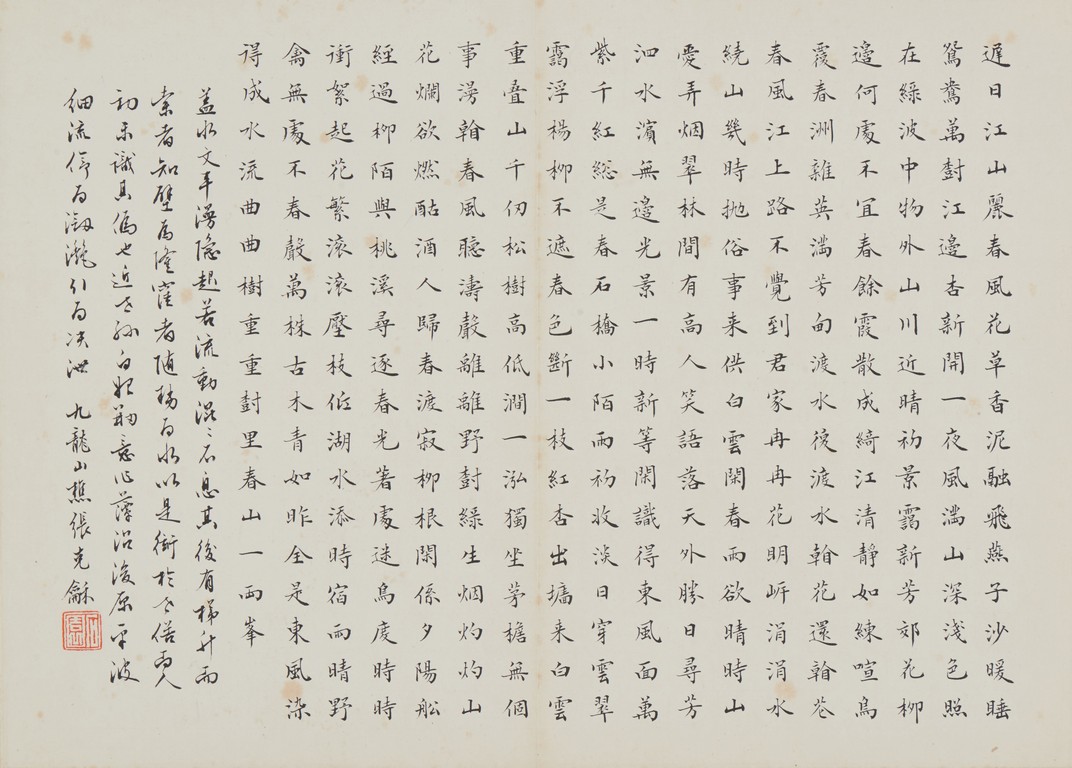 遲日江山麗春風花草香泥融飛燕子沙暖睡
鴛鴦萬對江邊杏新開一夜風滿山深淺色照
在綠波中物外山川近晴初景靄新芳郊花柳
邊何處不宜春餘霞散成綺江清靜如練喧鳥
覆春洲雜英滿芳甸渡水復渡水看花還看花
春風江上路不覺到君家冉冉花明岸涓涓水
繞山幾時拋俗事来供白雲閑春雨欲晴時山
愛弄烟翠林間有高人笑語落天外勝日尋芳
泗水濱無邊光景一時新等閑識得東風面萬
紫千紅總是春石橋小陌雨初收淡日穿雲翠
靄浮楊柳不遮春色斷一枝紅杏出墻来白雲
重疊山千仞松樹高低澗一泓獨坐茅檐無個
事漫看春風聽濤聲離離野對綠生烟灼灼山
花爛欲燃酤酒人歸春渡寂柳根閑係夕陽船
經過柳陌與桃溪尋逐春光著處迷鳥度時時
衝絮起花繁滾滾壓枝低湖水添時宿雨晴野
禽無處不春聲萬株古木青如昨全是東風染
得成水流曲曲樹重重對里春山一兩峯
蓋水文平漫隱起若流動混混不息其後有梯升而
索者知壁為窪者随楊為水以是銜於人倍
初不識其偽也近孫白始翻意作薄沿後原平波
細流停為瀲灩引為決泄 九龍山樵張克龢